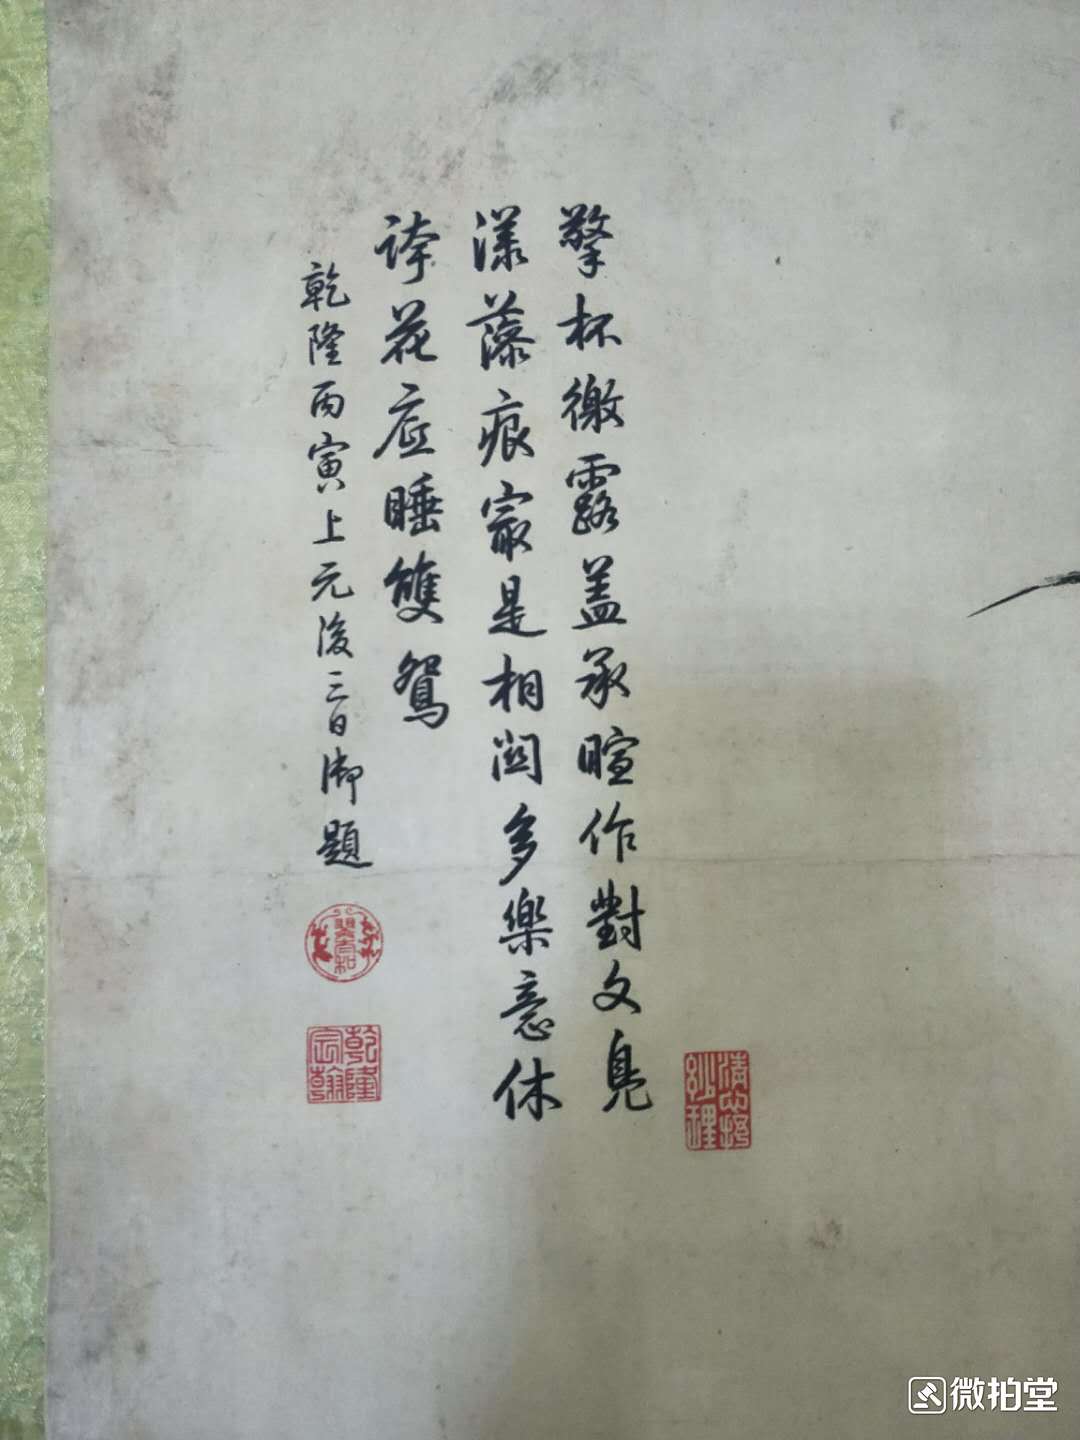 擎杯徵露盖承暄作對文凫
漾藻痕最是相関多樂意休
誇花底睡雙鴛
乾隆丙寅上元後三日御題
乾隆宸翰
微拍堂